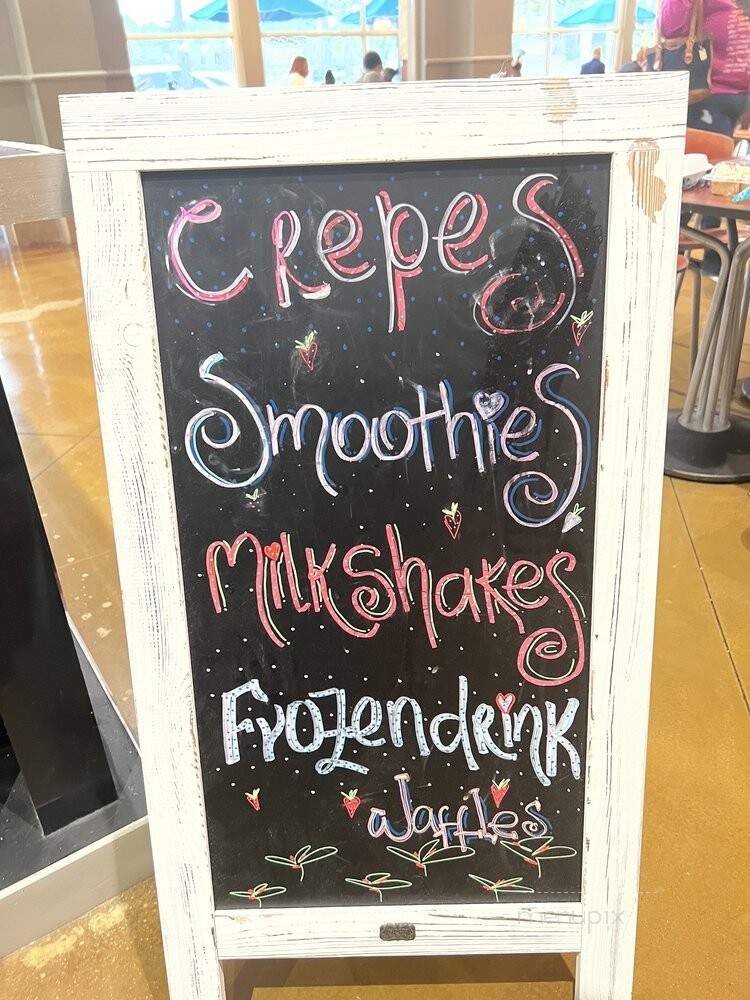 Crepes
Smoothies
Milkshakes
Frozendrink
Waffles
menupix